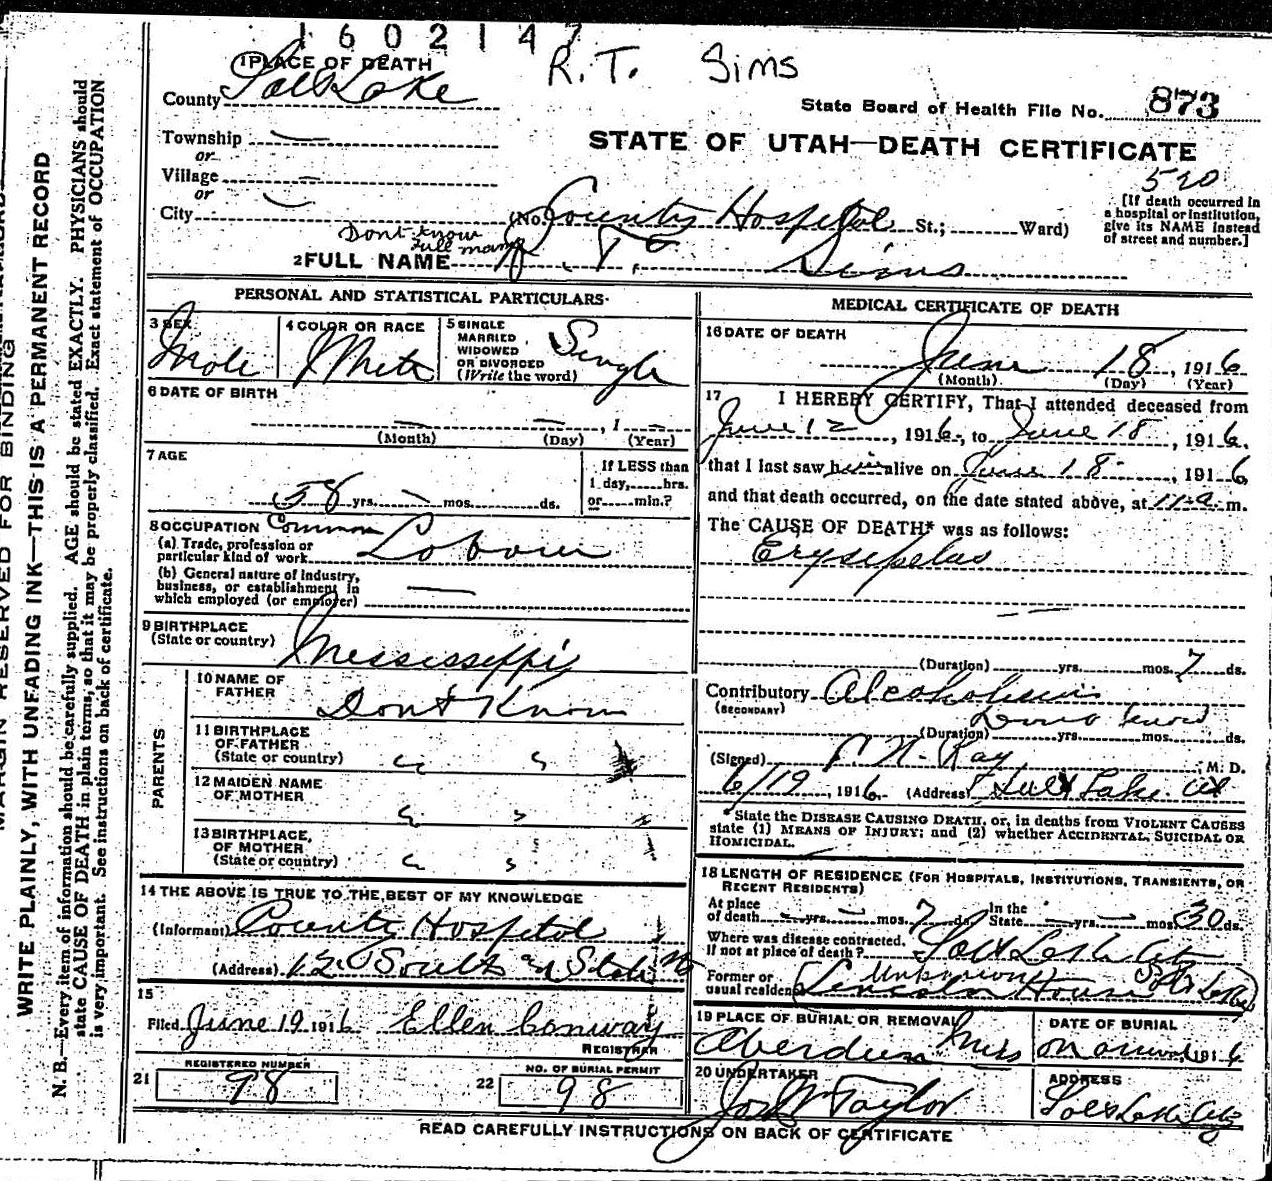 1602147
R.T. Sims
1 PLACE OF DEATH
County Salt Lake
State Board of Health File No. 873
Township —
or
Village —
or
City —
STATE OF UTAH—DEATH CERTIFICATE
520
[If death occurred in a hospital or institution, give its NAME instead of street and number.]
(No. County Hospital St.; Ward)
Dont know
full name
2 FULL NAME R. T. Sims
PERSONAL AND STATISTICAL PARTICULARS
3 SEX Male
4 COLOR OR RACE White
5 SINGLE MARRIED, WIDOWED OR DIVORCED (Write the word) Single
6 DATE OF BIRTH
— — , 1 —
(Month) (Day) (Year)
7 AGE
58 yrs. — mos. ds.
If LESS than 1 day, hrs. or min.?
8 OCCUPATION Common
(a) Trade, profession or particular kind of work Labour
(b) General nature of industry, business, or establishment in which employed (or employer) —
9 BIRTHPLACE
(State or country) Mississippi
PARENTS
10 NAME OF FATHER Dont Know
11 BIRTHPLACE OF FATHER (State or country) " "
12 MAIDEN NAME OF MOTHER " "
13 BIRTHPLACE, OF MOTHER (State or country) " "
14 THE ABOVE IS TRUE TO THE BEST OF MY KNOWLEDGE
(Informant) County Hospital
(Address) 12 South and State St
15
Filed June 19 1916 Ellen Conway
REGISTRAR
21 REGISTERED NUMBER 98
22 NO. OF BURIAL PERMIT 98
MEDICAL CERTIFICATE OF DEATH
16 DATE OF DEATH
June 18, 1916
(Month) (Day) (Year)
17 I HEREBY CERTIFY, That I attended deceased from
June 12, 1916, to June 18, 1916.
that I last saw him alive on June 18, 1916,
and that death occurred, on the date stated above, at 11 a m.
The CAUSE OF DEATH* was as follows:
Erysipelas
(Duration) yrs. mos. 7 ds.
Contributory Alcoholism
(SECONDARY)
(Duration) yrs. mos. ds.
(Signed) N. Ray, M. D.
6/19, 1916. (Address) Salt Lake Ut
*State the DISEASE CAUSING DEATH, or, in deaths from VIOLENT CAUSES
state (1) MEANS OF INJURY; and (2) whether ACCIDENTAL, SUICIDAL OR
HOMICIDAL.
18 LENGTH OF RESIDENCE (FOR HOSPITALS, INSTITUTIONS, TRANSIENTS, OR
RECENT RESIDENTS)
At place of death — yrs. — mos. 7 ds. In the State — yrs. — mos. 30 ds.
Where was disease contracted, If not at place of death? Salt Lake City
Unknown
Former or usual residence Lincoln House Salt Lake
19 PLACE OF BURIAL OR REMOVAL
Aberdeen Miss
DATE OF BURIAL
on arrival 1916
20 UNDERTAKER
Jos W Taylor
ADDRESS
Salt Lake City
READ CAREFULLY INSTRUCTIONS ON BACK OF CERTIFICATE
MARGIN RESERVED FOR BINDING
WRITE PLAINLY, WITH UNFADING INK—THIS IS A PERMANENT RECORD
N. B.—Every item of information should be carefully supplied. AGE should be stated EXACTLY. PHYSICIANS should
state CAUSE OF DEATH in plain terms, so that it may be properly classified. Exact statement of OCCUPATION
is very important. See instructions on back of certificate.